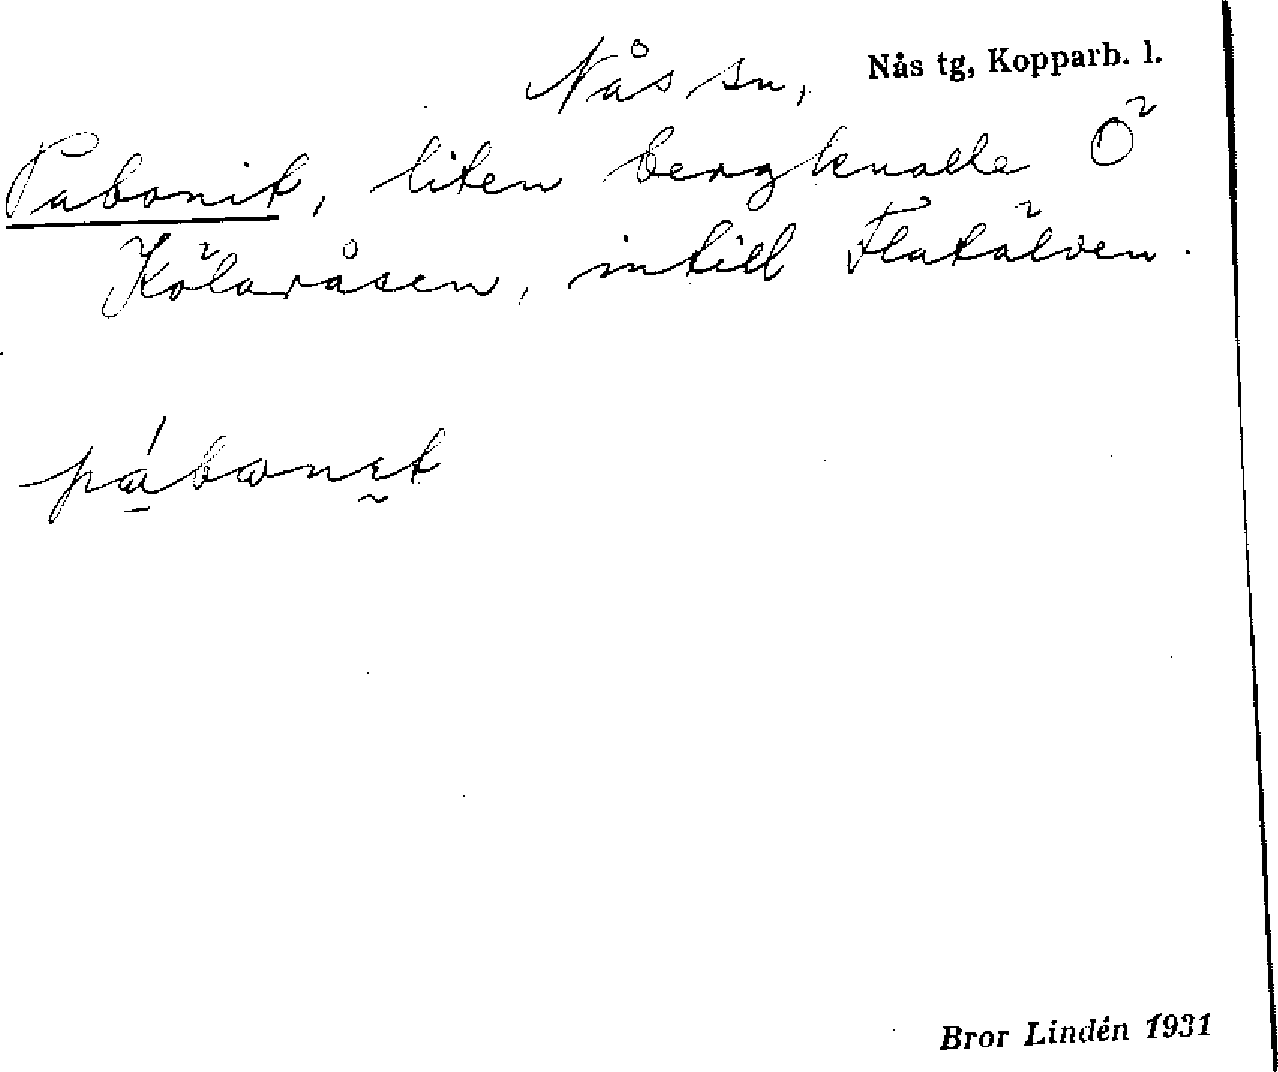 Nås sn, Nås tg, Kopparb. l.
Pabonit, liten bergknalle Ö
Kölaråsen, intill Flatälven.
pábonet
Bror Lindén 1931